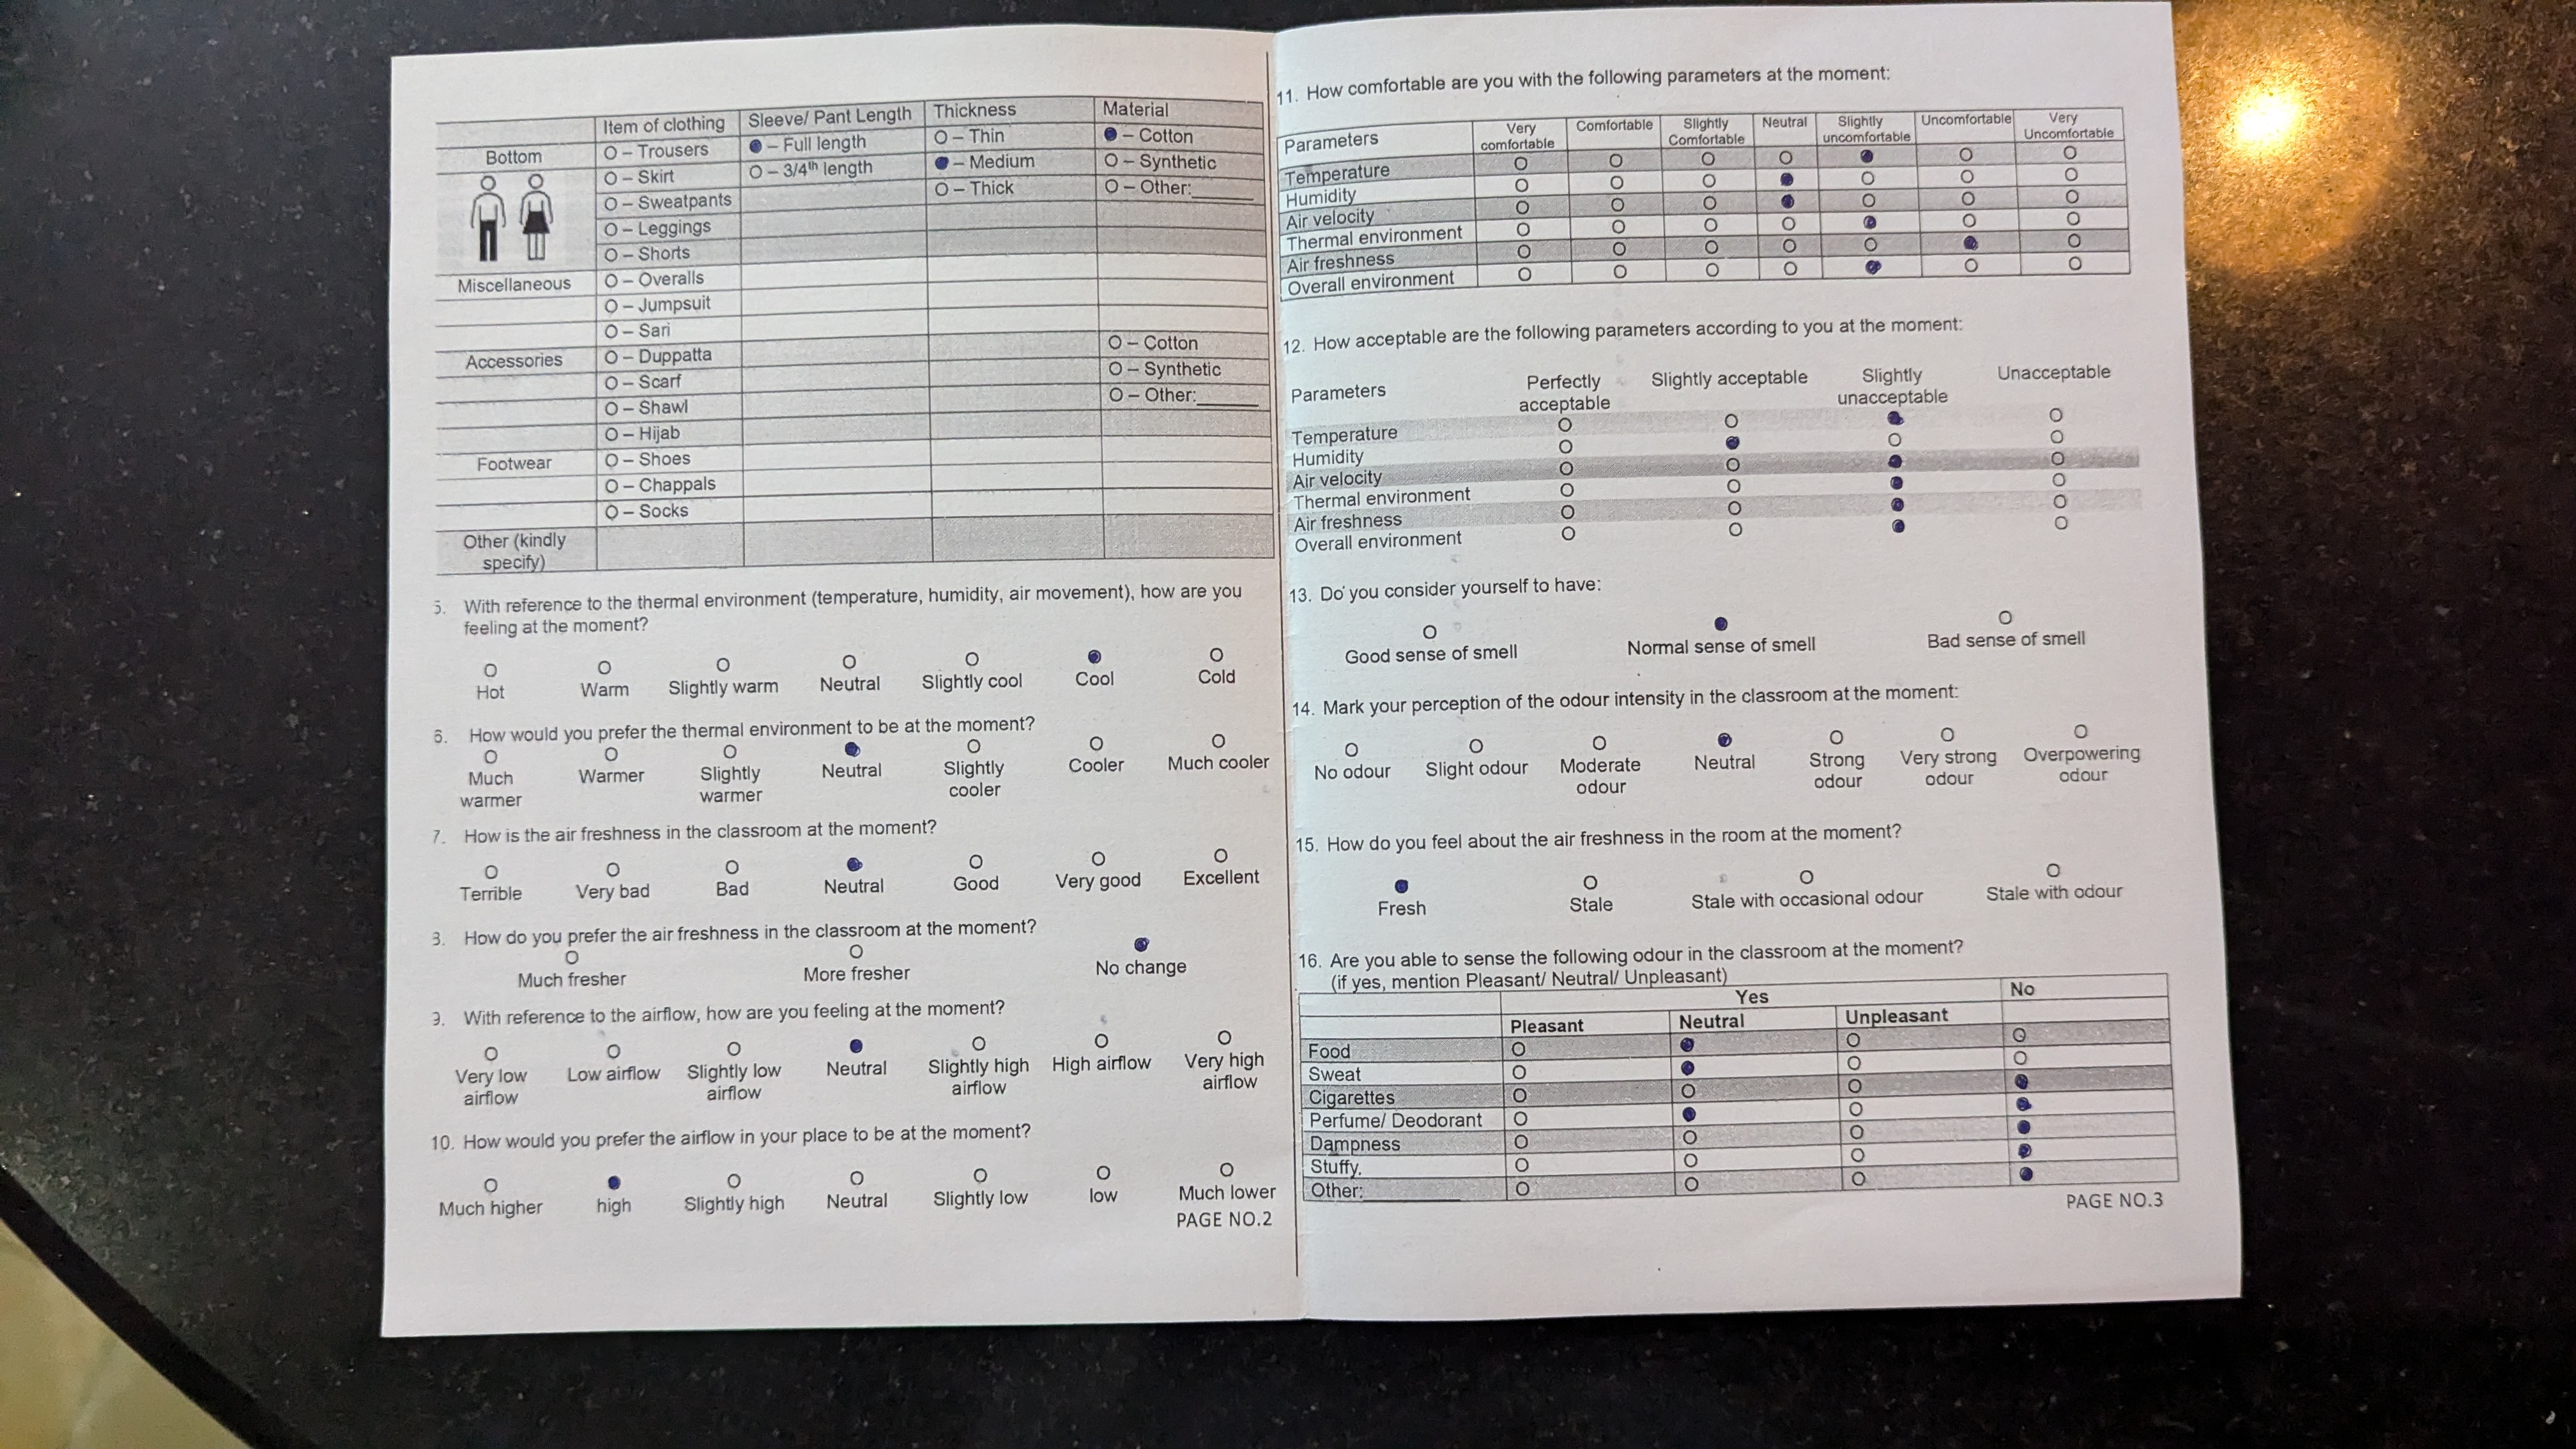 Item of clothing Sleeve/ Pant Length Thickness Material
Bottom O – Trousers ● – Full length O – Thin ● – Cotton
O – Skirt O – 3/4th length ● – Medium O – Synthetic
O – Sweatpants O – Thick O – Other:______
O – Leggings
O – Shorts
Miscellaneous O – Overalls
O – Jumpsuit
O – Sari
Accessories O – Duppatta O – Cotton
O – Scarf O – Synthetic
O – Shawl O – Other:______
O – Hijab
Footwear O – Shoes
O – Chappals
O – Socks
Other (kindly
specify)
5. With reference to the thermal environment (temperature, humidity, air movement), how are you
feeling at the moment?
O O O O O ● O
Hot Warm Slightly warm Neutral Slightly cool Cool Cold
6. How would you prefer the thermal environment to be at the moment?
O O O ● O O O
Much Warmer Slightly Neutral Slightly Cooler Much cooler
warmer warmer cooler
7. How is the air freshness in the classroom at the moment?
O O O ● O O O
Terrible Very bad Bad Neutral Good Very good Excellent
8. How do you prefer the air freshness in the classroom at the moment?
O O ●
Much fresher More fresher No change
9. With reference to the airflow, how are you feeling at the moment?
O O O ● O O O
Very low Low airflow Slightly low Neutral Slightly high High airflow Very high
airflow airflow airflow airflow
10. How would you prefer the airflow in your place to be at the moment?
O ● O O O O O
Much higher high Slightly high Neutral Slightly low low Much lower
PAGE NO.2
11. How comfortable are you with the following parameters at the moment:
Parameters Very Comfortable Slightly Neutral Slightly Uncomfortable Very
comfortable Comfortable uncomfortable Uncomfortable
Temperature O O O O ● O O
Humidity O O O ● O O O
Air velocity O O O ● O O O
Thermal environment O O O O ● O O
Air freshness O O O O O ● O
Overall environment O O O O ● O O
12. How acceptable are the following parameters according to you at the moment:
Parameters Perfectly Slightly acceptable Slightly Unacceptable
acceptable unacceptable
Temperature O O ● O
Humidity O ● O O
Air velocity O O ● O
Thermal environment O O ● O
Air freshness O O ● O
Overall environment O O ● O
13. Do you consider yourself to have:
O ● O
Good sense of smell Normal sense of smell Bad sense of smell
14. Mark your perception of the odour intensity in the classroom at the moment:
O O O ● O O O
No odour Slight odour Moderate Neutral Strong Very strong Overpowering
odour odour odour odour
15. How do you feel about the air freshness in the room at the moment?
● O O O
Fresh Stale Stale with occasional odour Stale with odour
16. Are you able to sense the following odour in the classroom at the moment?
(if yes, mention Pleasant/ Neutral/ Unpleasant)
Yes No
Pleasant Neutral Unpleasant
Food O ● O O
Sweat O ● O O
Cigarettes O O O ●
Perfume/ Deodorant O ● O ●
Dampness O O O ●
Stuffy. O O O ●
Other:__________ O O O ●
PAGE NO.3